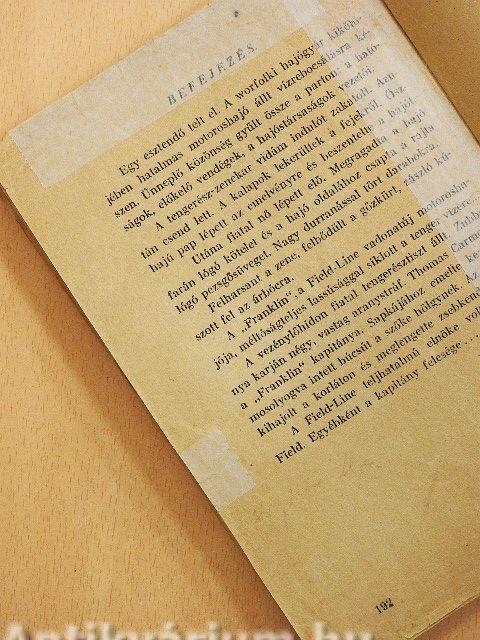 BEFEJEZÉS.
Egy esztendő telt el. A worfolki hajógyár kikötő-
jében hatalmas motoroshajó állt vízrebocsátásra ké-
szen. Ünneplő közönség gyűlt össze a parton: a ható-
ságok, előkelő vendégek, a hajóstársaságok vezetői.
A tengerész-zenekar vidám indulót zakatolt. Azu-
tán csend lett. A kalapok lekerültek a fejekről. Ősz
hajú pap lépett az emelvényre és beszentelte a hajót.
Utána fiatal nő lépett elő. Megragadta a hajó
farán lógó kötelet és a hajó oldalához csapta a rajta
lógó pezsgősüveget. Nagy durranással tört darabokra.
Felharsant a zene, felbődült a gőzkürt, zászló kú-
szott fel az árbócra.
A „Franklin", a Field-Line vadonatúj motorosha-
jója, méltóságteljes lassúsággal siklott a tenger vizére...
A vezénylőhídon fiatal tengerésztiszt állt. Zubbo-
nya karján négy, vastag aranystráf. Thomas Carmo
a „Franklin" kapitánya. Sapkájához emelte ke
mosolyogva intett búcsút a szőke hölgynek. A
kihajolt a korláton és meglengette zsebkend
A Field-Line teljhatalmú elnöke vol
Field. Egyébként a kapitány felesége...
192
Antikvárium.hu